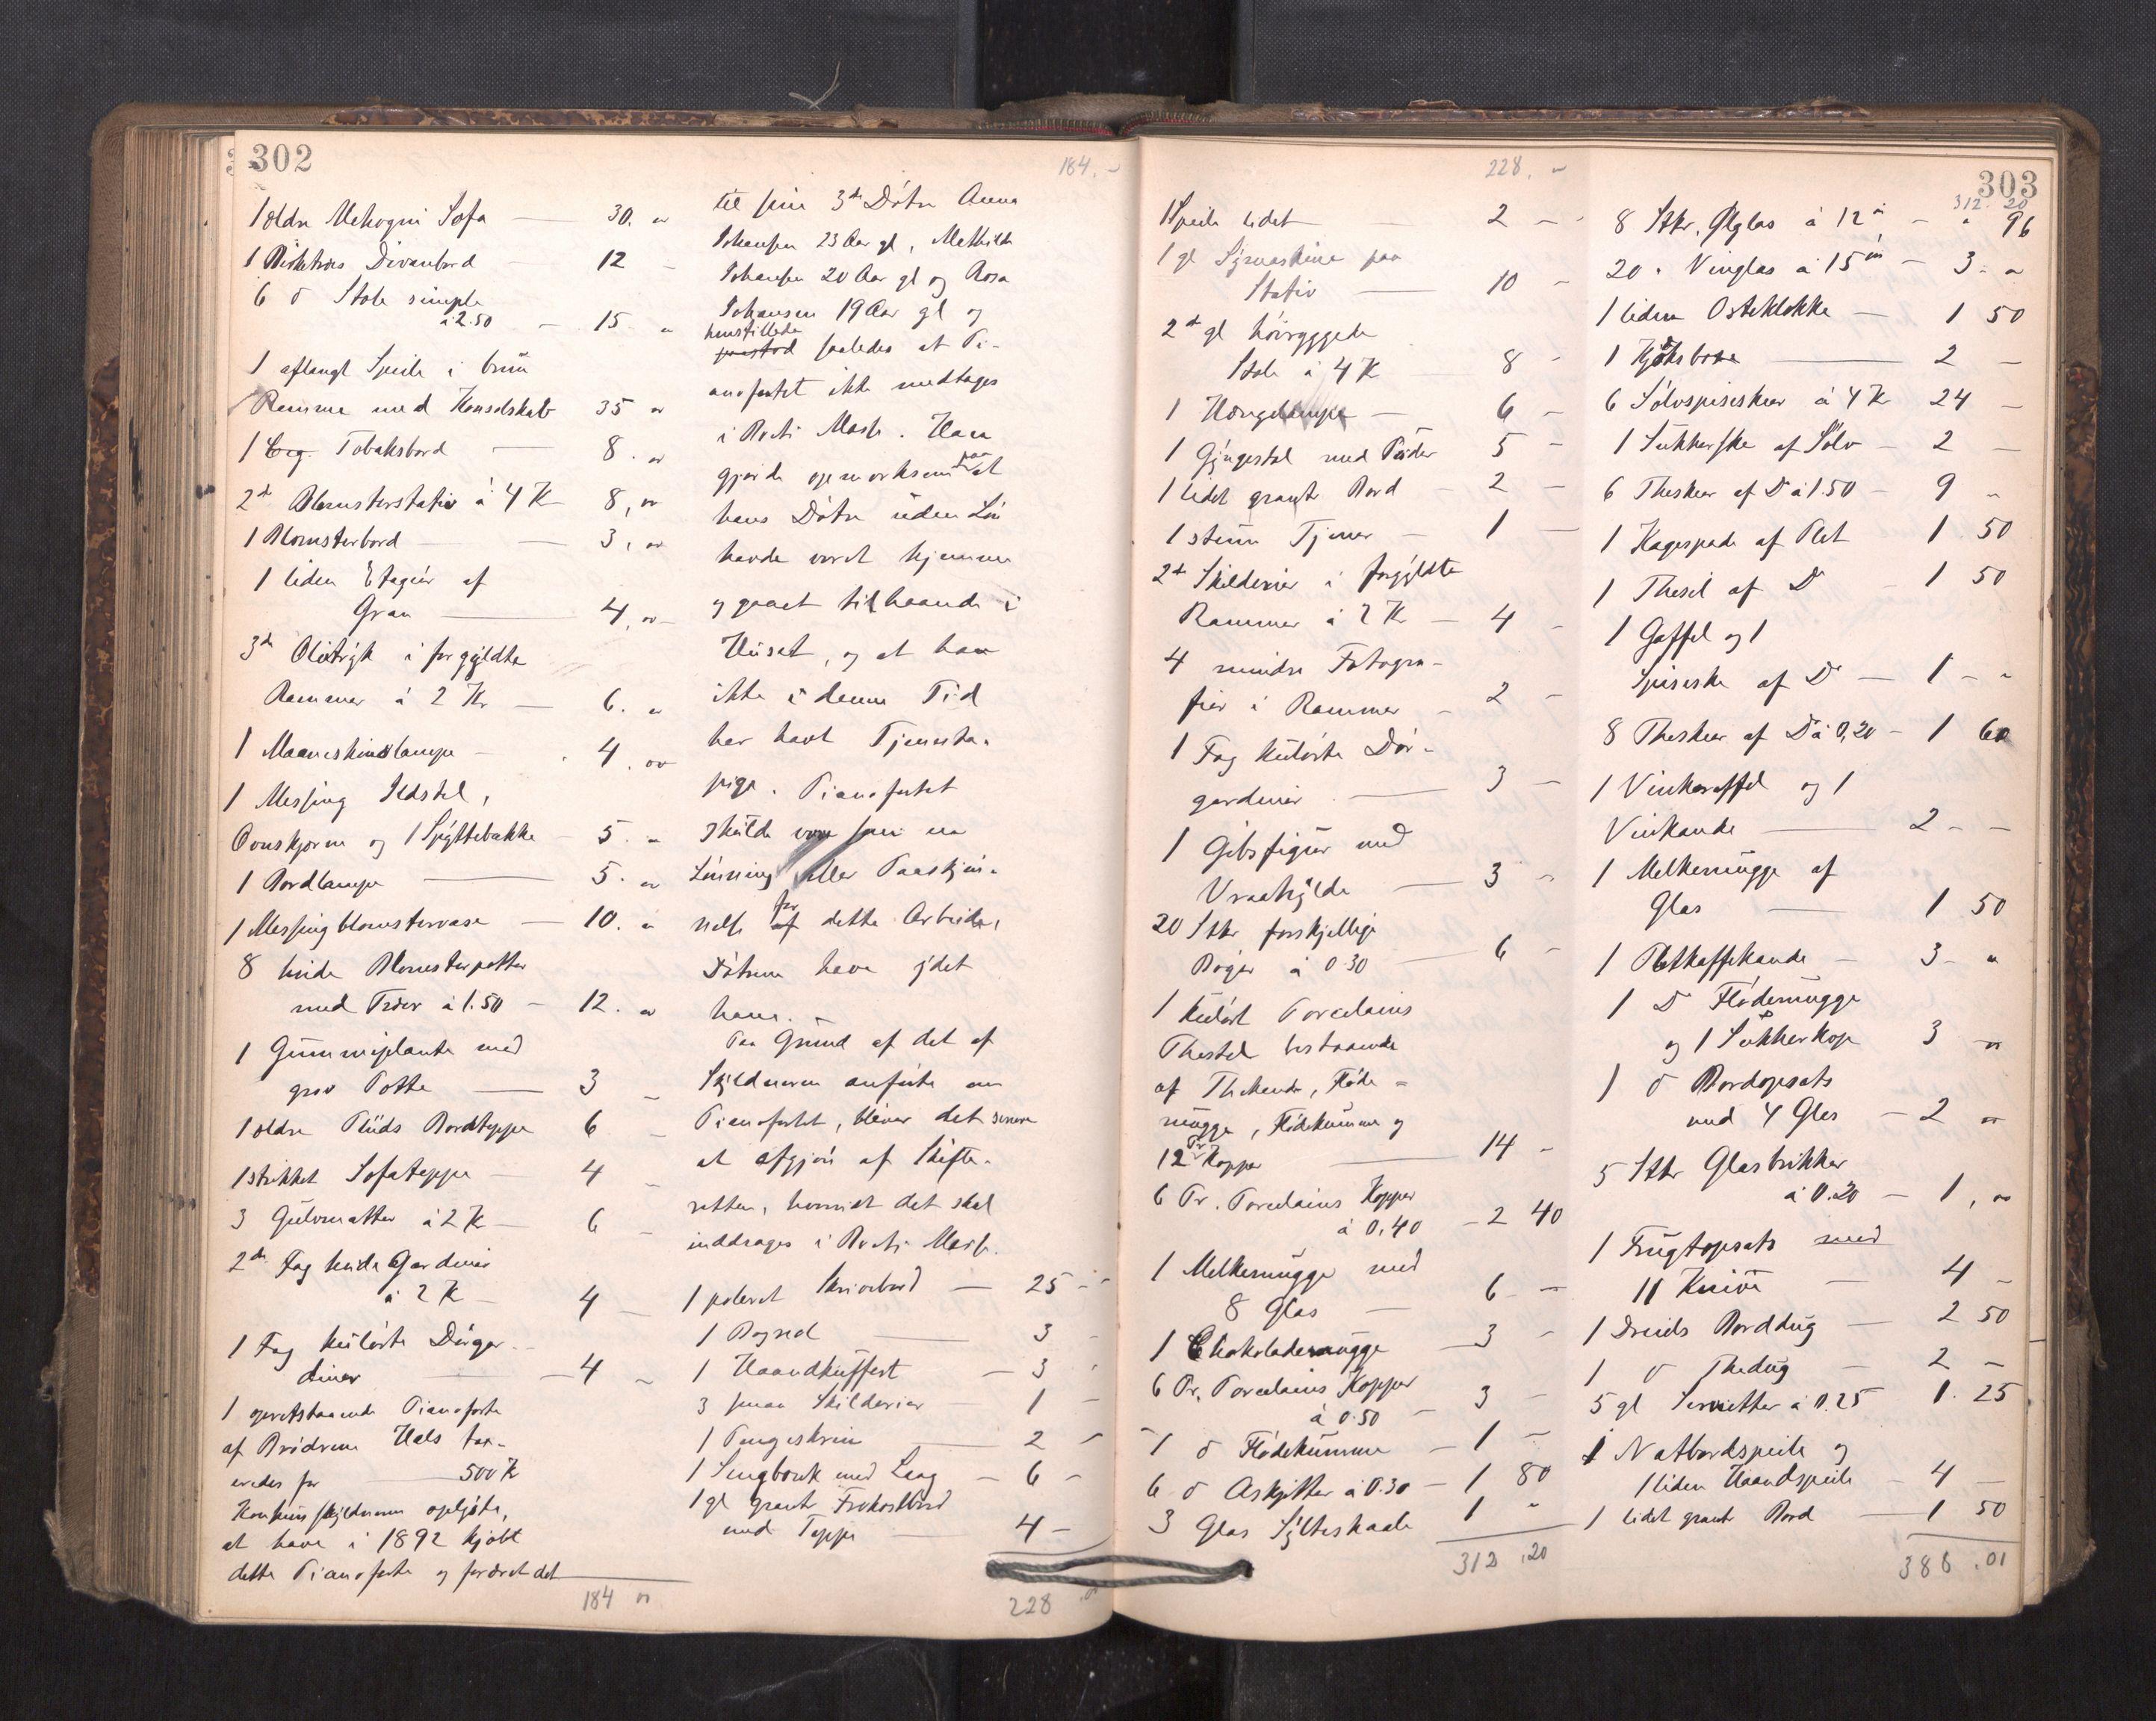 302
184. -
1 ældre Mahogni Sofa — 30. "
1 Birketræs Divanbord — 12 -
6 d Stole simple
à 2.50 - 15 "
1 aflangt Speile i brun
Ramme med Konsolskab 35 "
1 Tobaksbord — 8. "
2de Blomsterstativ à 4 K 8, "
1 Blomsterbord — 3, "
1 liden Etagiér af
Gran — 4, "
3de Olietryk i forgyldte
Rammer à 2 Kr — 6. "
1 Maaneskinslampe - 4. "
1 Messing Ildstel,
Ovnskjærm og 1 Spyttebakke - 5. "
1 Bordlampe — 5. "
1 Messingblomstervase — 10. "
8 hvide Blomsterpotter
med Træer à 1.50 - 12. "
1 Gummiplante med
grøn Potte — 3 -
1 ældre Pluds Bordteppe 6 -
1 strikket Sofateppe — 4 -
3 Gulvmatter à 2 K — 6 -
2de Fag hvide Gardiner
à 2 K — 4 -
1 Fag kulørte Dørgar-
diner — 4 -
1 opretstaaende Pianoforte
af Brødrene Hals tax-
eredes for — 500 K
Konkursskyldneren oplyste,
at have i 1892 kjøbt
dette Pianoforte og foræret det
184 "
til sine 3de Døtre Anna
Johansen 23 Aar gl, Mathilde
Johansen 20 Aar gl og Rosa
Johansen 19 Aar gl og
henstillede
paastod saaledes at Pi-
anofortet ikke medtages
i Boets Masse. Han
gjorde opmærksom paa at
hans Døtre uden Løn
havde været hjemme
og gaaet tilhaande i
Huset, og at han
ikke i denne Tid
har havt Tjeneste-
pige. Pianofortet
skulde være som en
Lønning eller Paaskjøn-
nelse af for dette Arbeide,
Døtrene have ydet
ham. -
Paa Grund af det af
Skyldneren anførte om
Pianofortet, bliver det senere
at afgjøre af Skifte-
retten, hvorvidt det skal
inddrages i Boets Masse.
1 poleret Skrivebord — 25 - -
1 Bogreol — 3 -
1 Haandkuffert — 3 -
3 smaa Skilderier — 1 -
1 Pengeskrin 2 -
1 Sengbænk med Laag — 6 -
1 gl graat Frokostbord
med Teppe — 4 -
228
228. "
303
312 20
1 Speile lidet — 2 - -
1 gl Symaskine paa
Stativ — 10 -
2de gl høiryggede
Stole à 4 K 8 -
1 Hængelampe — 6 -
1 Gyngestol med Puder 5 -
1 lidet graat Bord - 2 -
1 stum Tjener - 1 -
2de Skilderier i forgyldte
Rammer à 2 K - 4 -
4 mindre Fotogra-
fier i Rammer - 2 -
1 Fag kulørte Dør-
gardiner — 3 -
1 Gibsfigur med
Vraahylde — 3 -
20 Stkr forskjellige
Bøger à 0.30 — 6 -
1 kulørt Porcelains
Thestel bestaaende
af Thekande, Fløde-
mugge, Flødekumme og
12 Pr Kopper — 14 -
6 Pr. Porcelains Kopper
à 0,40 - 2 40
1 Melkemugge med
8 Glas — 6 -
1 Chokolademugge — 3 -
6 Pr. Porcelains Kopper
à 0.50 - 3 -
1 d Flødekumme — 1 -
6 d Askjetter à 0.30 - 1 80
3 Glas Sylteskaale 1 "
312 .20
8 Stkr. Ølglas à 12 ø - " 96
20 " Vinglas à 15 ø - 3 - "
1 liden Osteklokke — 1 50
1 Kjøksbose — 2 -
6 Sølvspiseskeer à 4 K 24 -
1 Sukkerske af Sølv - 2 -
6 Theskeer af Do à 1.50 - 9 "
1 Kagespade af Plet 1 50
1 Thesil af Do - 1 50
1 Gaffel og 1
Spiseske af Do — 1 - "
8 Theskeer af Do à 0,20 - 1 60
1 Vinkaraffel og 1
Vinkande — 2 - -
1 Melkemugge af
Glas — 1 50
1 Pletkaffekande — 3 - "
1 Do Flødemugge
og 1 Sukkerkop 3 "
1 d Bordopsats
med 4 Glas - 2 "
5 Stkr Glasbrikker
à 0.20 - 1, "
1 Frugtopsats med
11 Knive — 4 -
1 Dreiels Borddug — 2 50
1 d Thedug — 2 -
5 gl Servietter à 0.25 1. 25
1 Natbordspeile og
1 liden Haandspeile - 4 -
1 lidet graat Bord — 1 50
386 .01